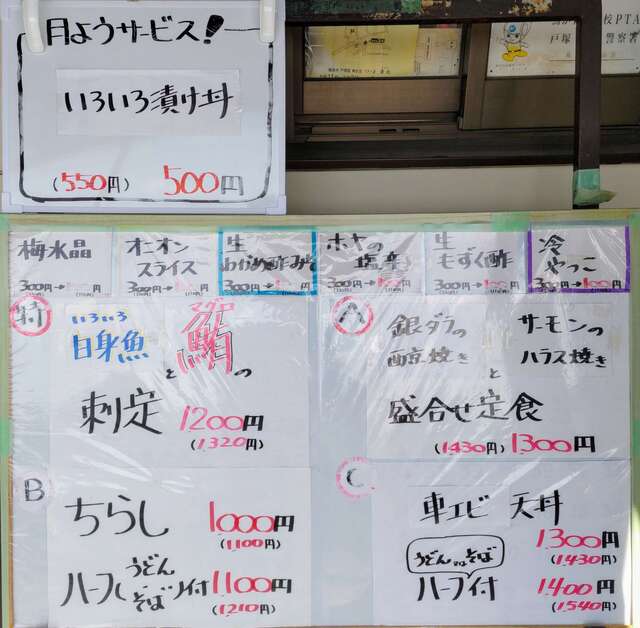 月ようサービス!
いろいろ漬け丼
(550円) 500円
校PTA
戸塚 警察署
梅水晶
300円→
オニオン
スライス
300円→100円
生
わかめ酢みそ
300円→
ホヤの
塩辛
300円→100円
生
もずく酢
300円→100円
冷
やっこ
300円→100円
特
いろいろ
白身魚
と
マグロ
鮪の
刺定 1200円
(1,320円)
A
銀ダラの
西京焼き
と
サーモンの
ハラス焼き
盛合せ定食
(1430円) 1300円
B
ちらし 1000円
(1,100円)
ハーフ(うどん
そば)付 1,100円
(1,210円)
C
車エビ 天丼
1300円
(1,430円)
うどん or そば
ハーフ付 1,400円
(1,540円)